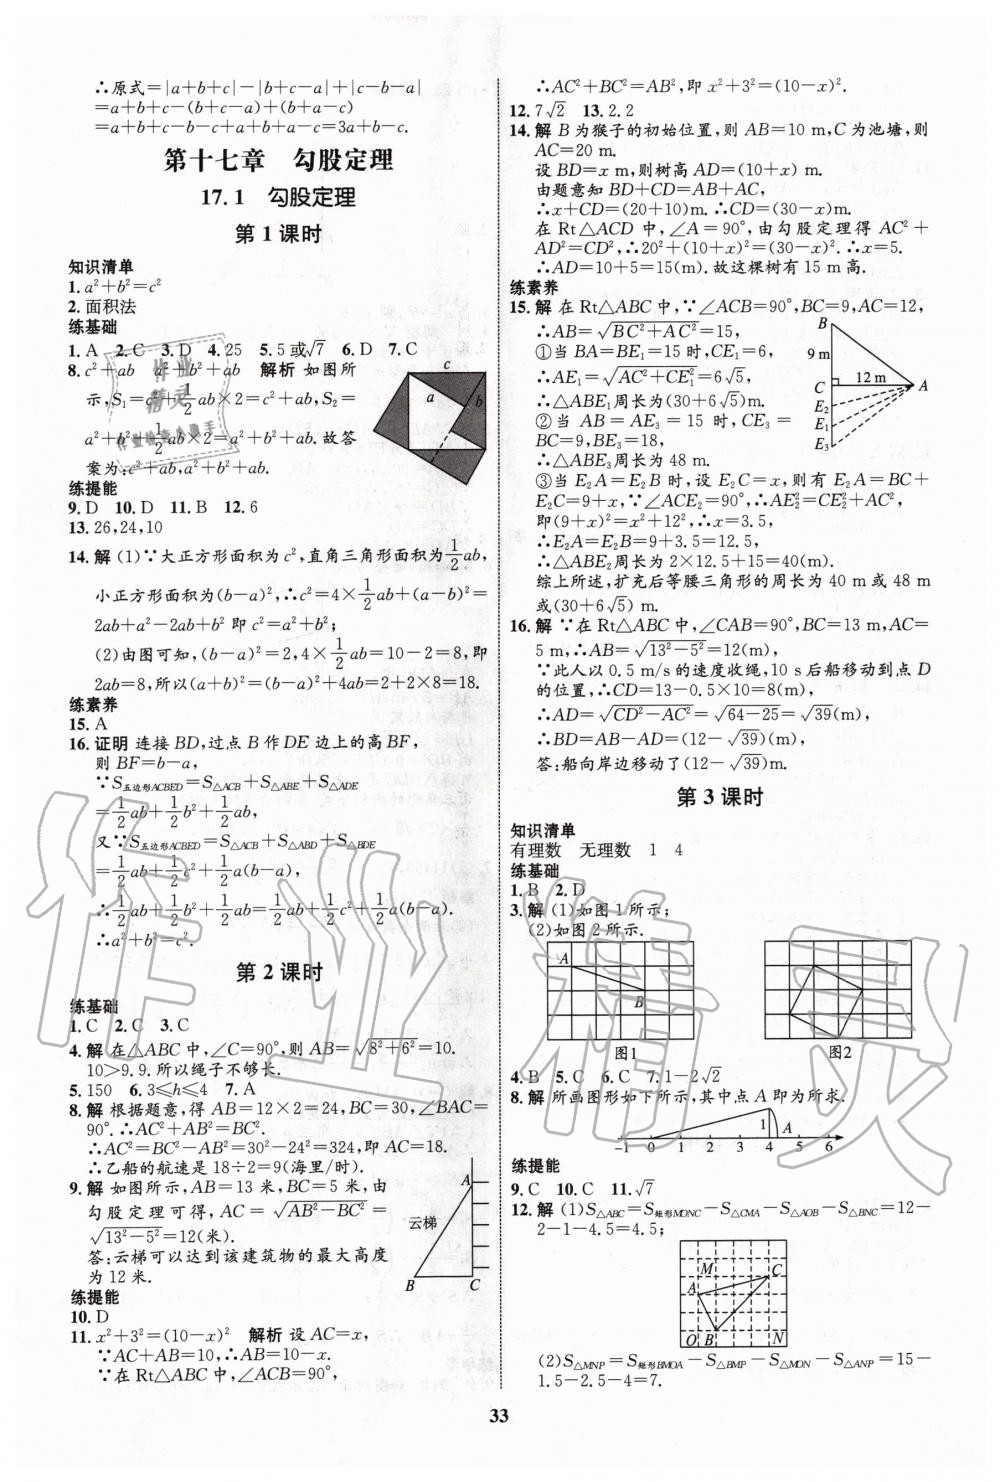 ∴原式=|a+b+c|-|b+c-a|+|c-b-a|
=a+b+c-(b+c-a)+(b+a-c)
=a+b+c-b-c+a+b+a-c=3a+b-c.
第十七章 勾股定理
17.1 勾股定理
第1课时
知识清单
1.a²+b²=c²
2.面积法
练基础
1.A 2.C 3.D 4.25 5.5或√7 6.D 7.C
8.c²+ab a²+b²+ab 解析 如图所
示,S₁=c²+1/2ab×2=c²+ab,S₂=
a²+b²+1/2ab×2=a²+b²+ab.故答
案为:c²+ab,a²+b²+ab.
c
a
b
练提能
9.D 10.D 11.B 12.6
13.26,24,10
14.解 (1)∵大正方形面积为c²,直角三角形面积为1/2ab,
小正方形面积为(b-a)²,∴c²=4×1/2ab+(a-b)²=
2ab+a²-2ab+b² 即c²=a²+b²;
(2)由图可知,(b-a)²=2,4×1/2ab=10-2=8,即
2ab=8,所以(a+b)²=(b-a)²+4ab=2+2×8=18.
练素养
15.A
16.证明 连接BD,过点B作DE边上的高BF,
则BF=b-a,
∵S五边形ACBED=S△ACB+S△ABE+S△ADE
=1/2ab+1/2b²+1/2ab,
又∵S五边形ACBED=S△ACB+S△ABD+S△BDE
=1/2ab+1/2c²+1/2a(b-a),
∴1/2ab+1/2b²+1/2ab=1/2ab+1/2c²+1/2a(b-a).
∴a²+b²=c².
第2课时
练基础
1.C 2.C 3.C
4.解 在△ABC中,∠C=90°,则AB=√8²+6²=10.
10>9.9.所以绳子不够长.
5.150 6.3≤h≤4 7.A
8.解 根据题意,得AB=12×2=24,BC=30,∠BAC=
90°.∴AC²+AB²=BC².
∴AC²=BC²-AB²=30²-24²=324,即AC=18.
∴乙船的航速是18÷2=9(海里/时).
9.解 如图所示,AB=13米,BC=5米,由
勾股定理可得,AC=√AB²-BC²=
√13²-5²=12(米).
答:云梯可以达到该建筑物的最大高度
为12米.
A
云梯
B
C
练提能
10.D
11.x²+3²=(10-x)² 解析 设AC=x,
∵AC+AB=10,∴AB=10-x.
∵在Rt△ABC中,∠ACB=90°,
∴AC²+BC²=AB²,即x²+3²=(10-x)².
12.7√2 13.2.2
14.解 B为猴子的初始位置,则AB=10 m,C为池塘,则
AC=20 m.
设BD=x m,则树高AD=(10+x) m.
由题意知BD+CD=AB+AC,
∴x+CD=(20+10)m.∴CD=(30-x)m.
在Rt△ACD中,∠A=90°,由勾股定理得AC²+
AD²=CD²,∴20²+(10+x)²=(30-x)².∴x=5.
∴AD=10+5=15(m).故这棵树有15 m高.
练素养
15.解 在Rt△ABC中,∵∠ACB=90°,BC=9,AC=12,
∴AB=√BC²+AC²=15,
①当BA=BE₁=15时,CE₁=6,
∴AE₁=√AC²+CE₁²=6√5,
∴△ABE₁周长为(30+6√5)m.
②当AB=AE₃=15时,CE₃=
BC=9,BE₃=18,
∴△ABE₃周长为48 m.
B
9 m
C
12 m
A
E₂
E₁
E₃
③当E₂A=E₂B时,设E₂C=x,则有E₂A=BC+
E₂C=9+x,∵∠ACE₂=90°,∴AE₂²=CE₂²+AC²,
即(9+x)²=x²+12²,∴x=3.5,
∴E₂A=E₂B=9+3.5=12.5,
∴△ABE₂周长为2×12.5+15=40(m).
综上所述,扩充后等腰三角形的周长为40 m或48 m
或(30+6√5) m.
16.解 ∵在Rt△ABC中,∠CAB=90°,BC=13 m,AC=
5 m,∴AB=√13²-5²=12(m).
∵此人以0.5 m/s的速度收绳,10 s后船移动到点D
的位置,∴CD=13-0.5×10=8(m).
∴AD=√CD²-AC²=√64-25=√39(m),
∴BD=AB-AD=(12-√39)(m).
答:船向岸边移动了(12-√39)m.
第3课时
知识清单
有理数 无理数 1 4
练基础
1.B 2.D
3.解 (1)如图1所示;
(2)如图2所示.
A
B
图1
图2
4.B 5.C 6.C 7.1-2√2
8.解 所画图形如下所示,其中点A即为所求.
1
A
-1 0 1 2 3 4 5 6
练提能
9.C 10.C 11.√7
12.解 (1)S△ABC=S矩形MONC-S△CMA-S△AOB-S△BNC=12-
2-1-4.5=4.5;
M
C
A
O
B
N
(2)S△MNP=S矩形BMOA-S△BMP-S△MON-S△ANP=15-
1.5-2.5-4=7.
33
作业精灵
作业
精灵